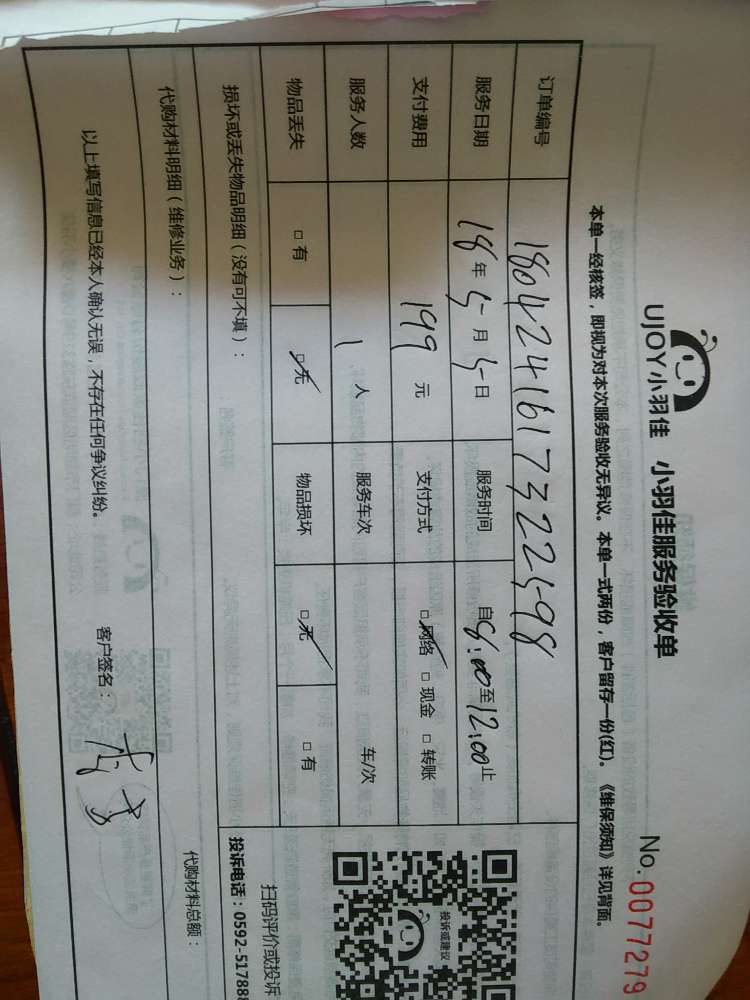 UJOY小羽佳 小羽佳服务验收单
No.0077279
本单一经核签，即视为对本次服务验收无异议。本单一式两份，客户留存一份(红)。《维保须知》详见背面。
订单编号 1804241617322598
服务日期 18年5月5日 服务时间 自8:00至12:00止
支付费用 199元 支付方式 □网络 □现金 □转账
服务人数 1人 服务车次 车/次
物品丢失 □有 □无 物品损坏 □无 □有
损坏或丢失物品明细（没有可不填）：
代购材料明细（维修业务）：
代购材料总额：
以上填写信息已经本人确认无误，不存在任何争议纠纷。 客户签名：
投诉或建议
扫码评价或投诉
投诉电话：0592-517888